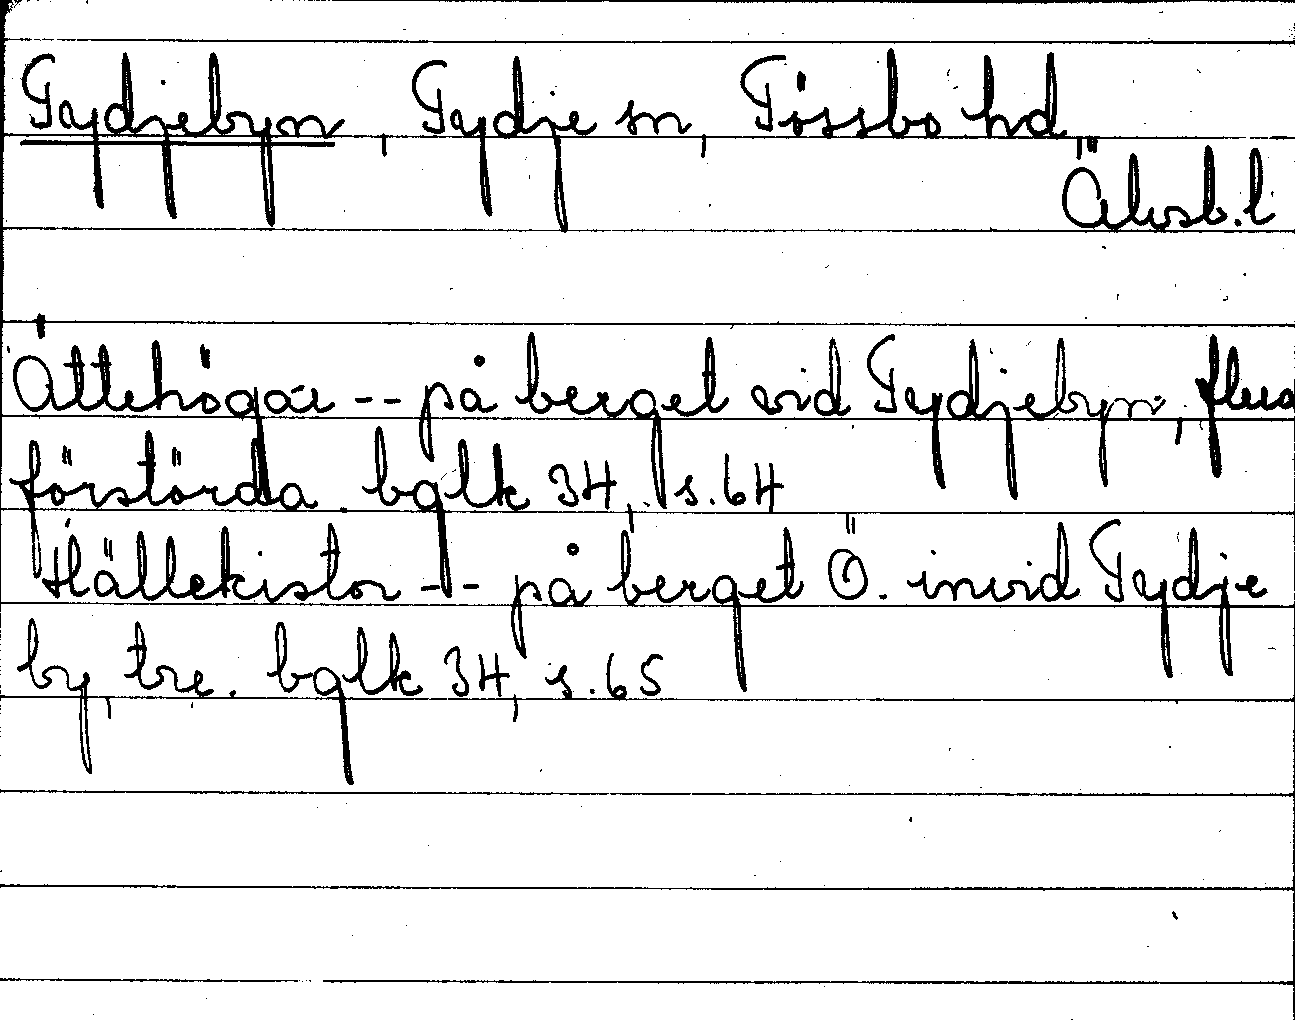 Tydjebyn, Tydje sn, Tössbo hd
Älvsb.l
Ättehögar -- på berget vid Tydjebyn, flera
förstörda. bglk 34, s.64
Hällekistor -- på berget Ö. invid Tydje
by, tre. bglk 34, s.65